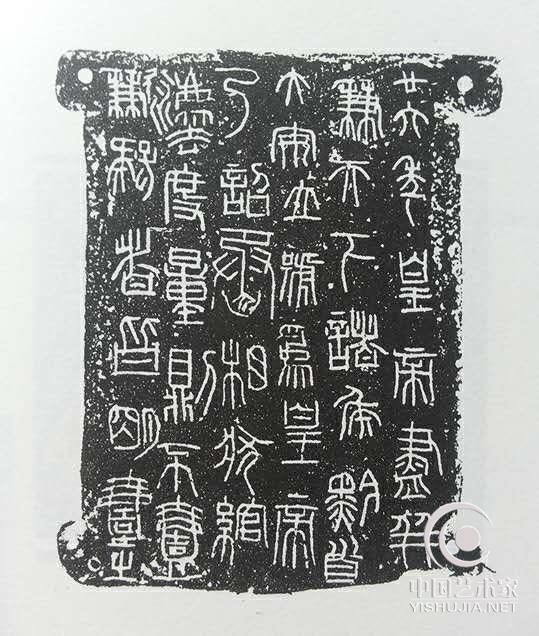 廿六年皇帝盡并
兼天下諸侯黔首
大安立號爲皇帝
乃詔丞相狀綰
灋度量則不壹
歉疑者皆明壹之
中国艺术家
YISHUJIA.NET